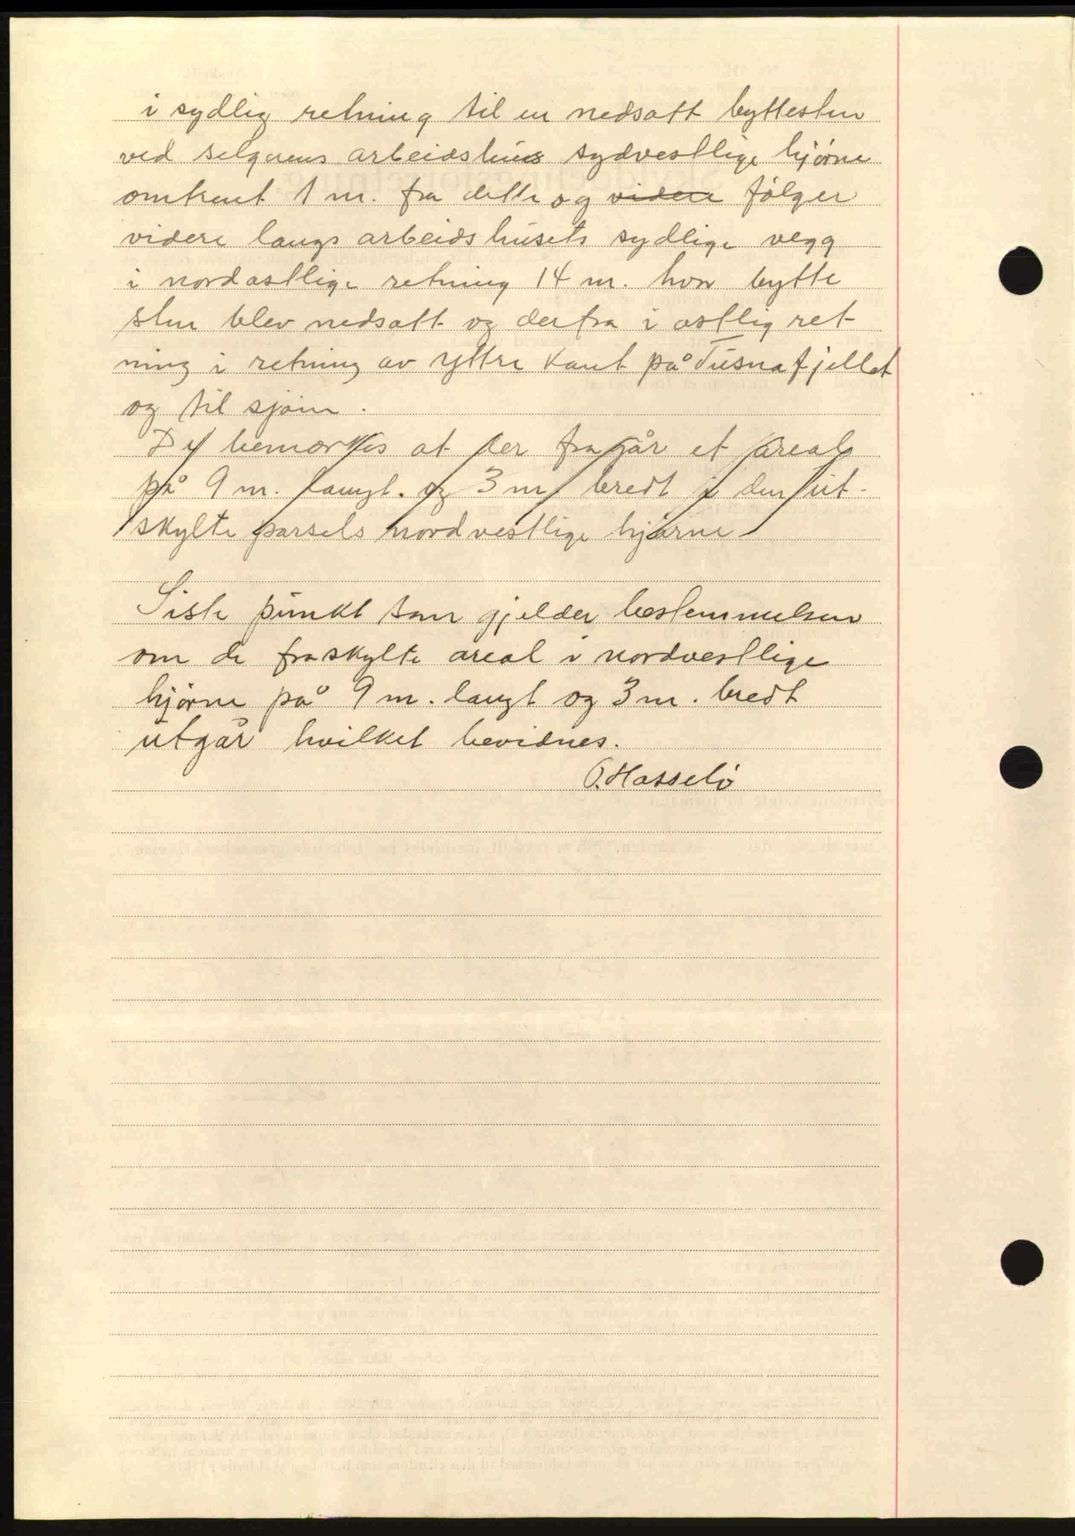 i sydlig retning til en nedsatt byttesten
ved selgerens arbeidshus sydvestlige hjørne
omtrent 1 m. fra dette og videre følger
videre langs arbeidshusets sydlige vegg
i nordøstlige retning 14 m. hvor bytte
sten blev nedsatt og derfra i østlig ret
ning i retning av yttre kant på Tusnafjellet
og til sjøen.
bemerkes at der fragår et areal
på 9 m. langt. og 3 m bredt i den ut-
skylte parsels nordvestlige hjørne
Siste punkt som gjelder bestemmelsen
om de fraskylte areal i nordvestlige
hjørne på 9 m. langt og 3 m. bredt
utgår hvilket bevidnes.
O. Hasselø